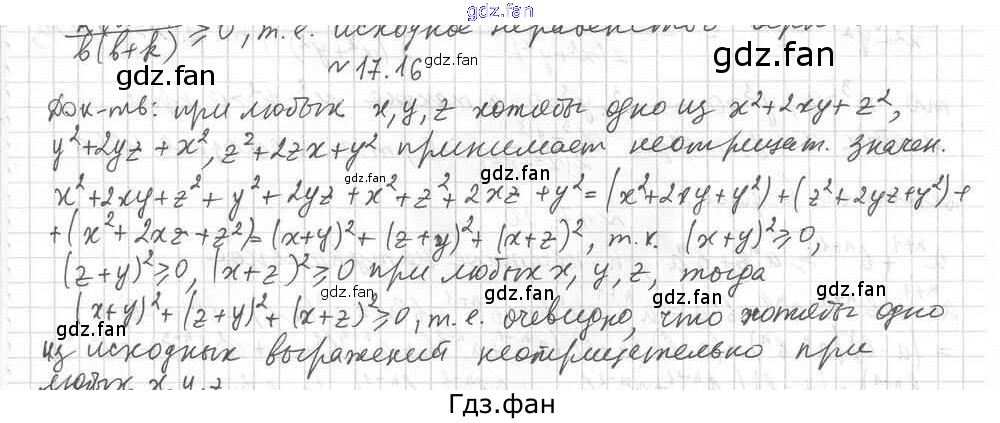 gdz.fan
b(b+k) ≥ 0, т.е. исходное
gdz.fan
gdz.fan
gdz.fan
№17.16
Док-ть: при любых x, y, z хотябы одно из x²+2xy+z²,
y²+2yz+x², z²+2zx+y² принимает неотрицат. значен.
gdz.fan
gdz.fan
x²+2xy+z²+y²+2yz+x²+z²+2xz+y²=(x²+2xy+y²)+(z²+2yz+y²)+
+(x²+2xz+z²)=(x+y)²+(z+y)²+(x+z)², т.к. (x+y)²≥0,
gdz.fan
gdz.fan
(z+y)²≥0, (x+z)²≥0 при любых x, y, z, тогда
gdz.fan
gdz.fan
(x+y)²+(z+y)²+(x+z)²≥0, т.е. очевидно, что хотябы одно
gdz.fan
gdz.fan
из исходных выражений неотрицательно при
любых x, y, z
Гдз.фан